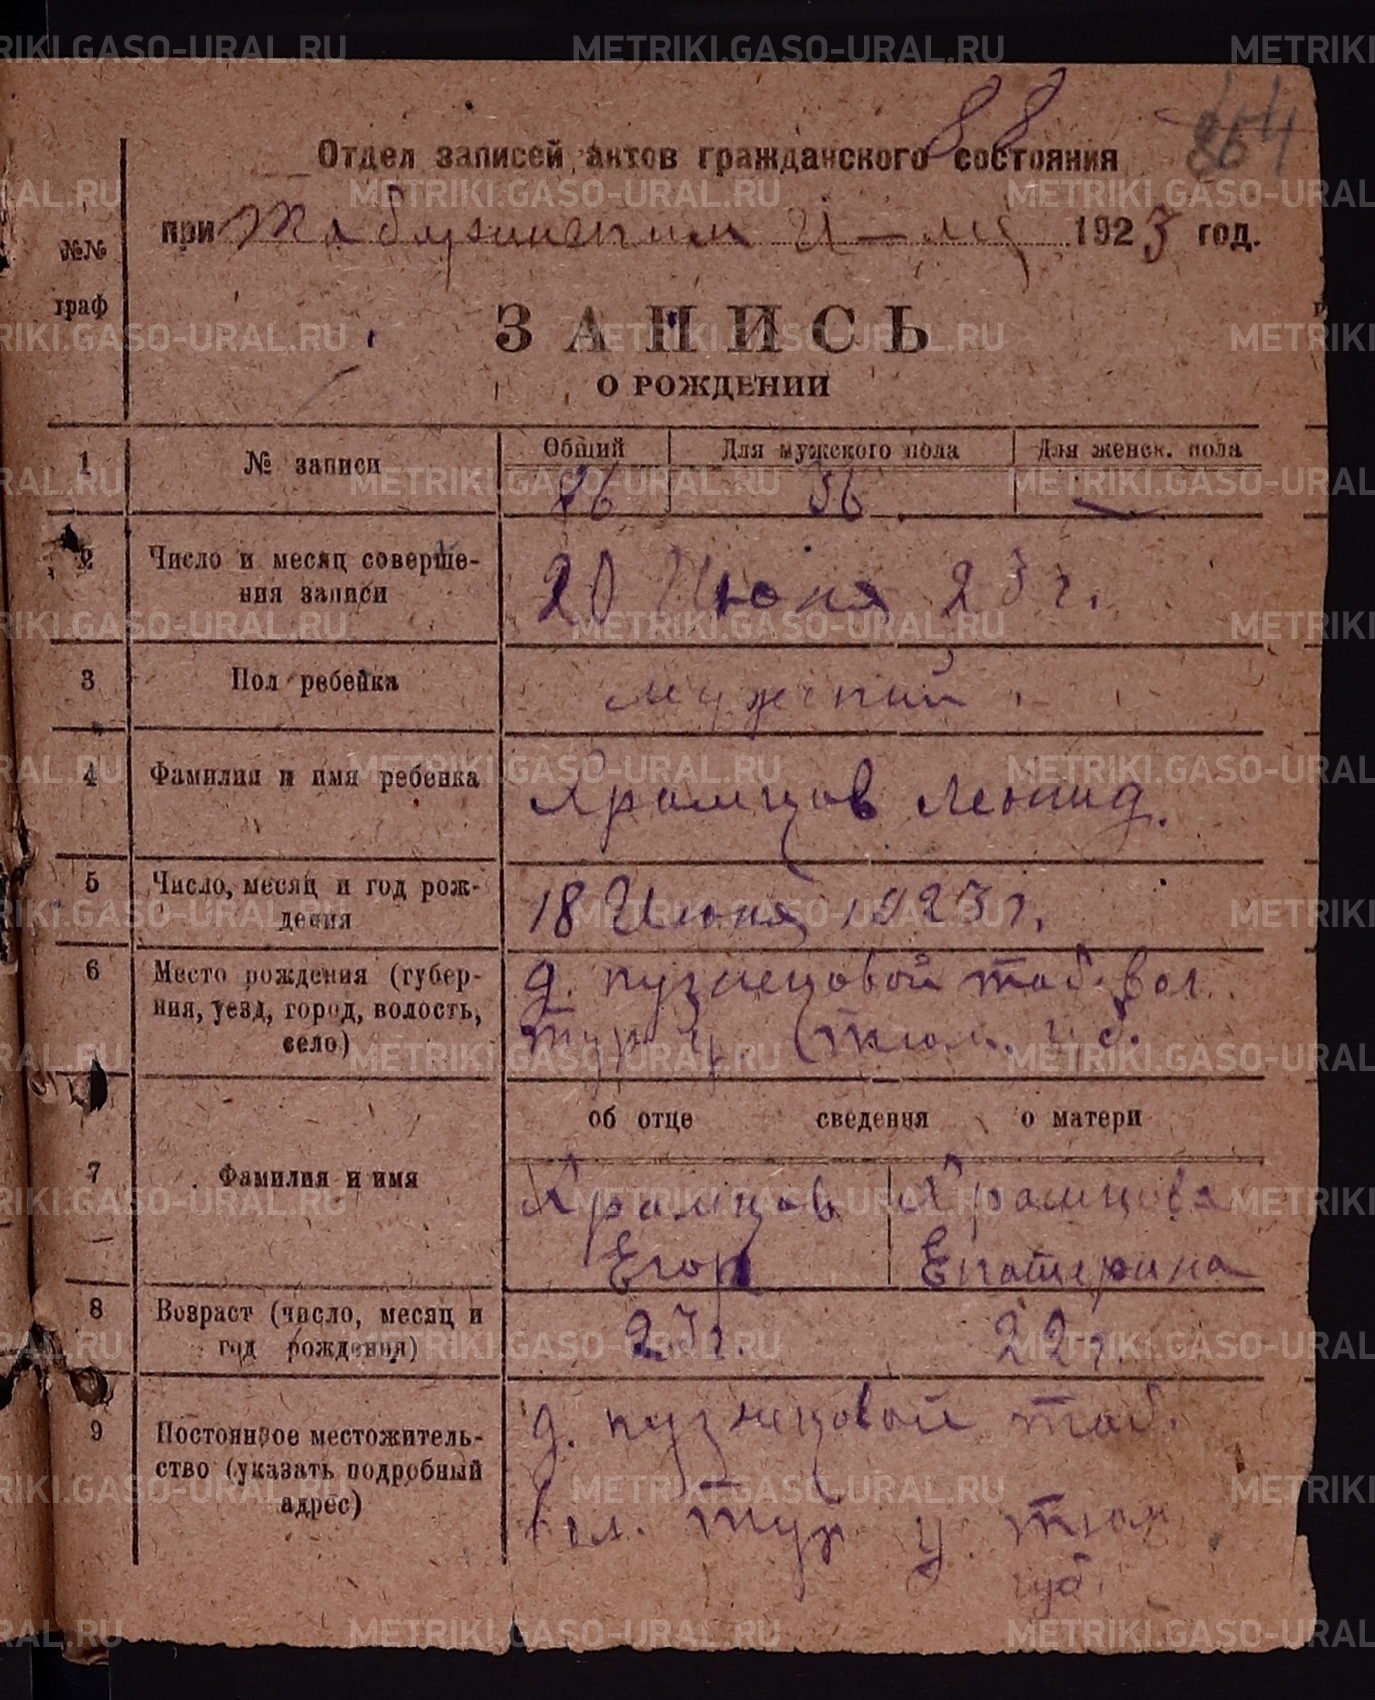 88
864
Отдел записей актов гражданского состояния
при Табуринском И-ми 1923 год.
№№
граф
ЗАПИСЬ
О РОЖДЕНИИ
1 № записи Общий Для мужского пола Для женск. пола
86 36 —
2 Число и месяц соверше-
ния записи
20 Июня 23 г.
3 Пол ребенка мужский
4 Фамилия и имя ребенка Храмцов Леонид.
5 Число, месяц и год рож-
дения
18 Июня 1923 г.
6 Место рождения (губер-
ния, уезд, город, волость,
село)
д. Кузнецовой Таб. вол.
Тур у. Тюм. губ.
об отце сведения о матери
7 Фамилия и имя
Храмцов Храмцова
Егор Екатерина
8 Возраст (число, месяц и
год рождения)
23 г. 22 г.
9 Постоянное местожитель-
ство (указать подробный
адрес)
д. Кузнецовой Таб.
вол. Тур у. Тюм
губ.
METRIKI.GASO-URAL.RU